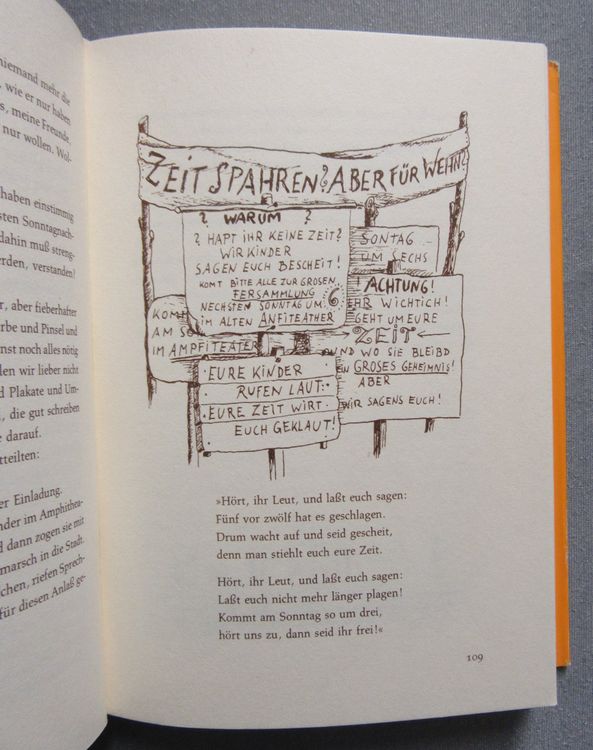 niemand mehr die
, wie er nur haben
s, meine Freunde,
nur wollen. Wol-
haben einstimmig
sten Sonntagnach-
dahin muß streng-
erden, verstanden?
r, aber fieberhafter
rbe und Pinsel und
nst noch alles nötig
len wir lieber nicht
d Plakate und Um-
, die gut schreiben
e darauf.
tteilten:
er Einladung.
nder im Amphithea-
d dann zogen sie mit
marsch in die Stadt.
chen, riefen Sprech-
für diesen Anlaß ge-
ZEIT SPAHREN? ABER FÜR WEHN?
? WARUM ?
? HAPT IHR KEINE ZEIT?
WIR KINDER
SAGEN EUCH BESCHEIT!
KOMT BITTE ALLE ZUR GROSEN
FERSAMMLUNG
NECHSTEN SONNTAG UM 6
IM ALTEN ANFITEATHER
SONTAG
UM SECHS
KOM
AM SO
IM AMPFITEATER
ACHTUNG!
EHR WICHTICH!
GEHT UM EURE
ZEIT
ND WO SIE BLEIBD
EN GROSES GEHEIMNIS!
ABER
WIR SAGENS EUCH!
EURE KINDER
RUFEN LAUT:
EURE ZEIT WIRT
EUCH GEKLAUT!
»Hört, ihr Leut, und laßt euch sagen:
Fünf vor zwölf hat es geschlagen.
Drum wacht auf und seid gescheit,
denn man stiehlt euch eure Zeit.
Hört, ihr Leut, und laßt euch sagen:
Laßt euch nicht mehr länger plagen!
Kommt am Sonntag so um drei,
hört uns zu, dann seid ihr frei!«
109